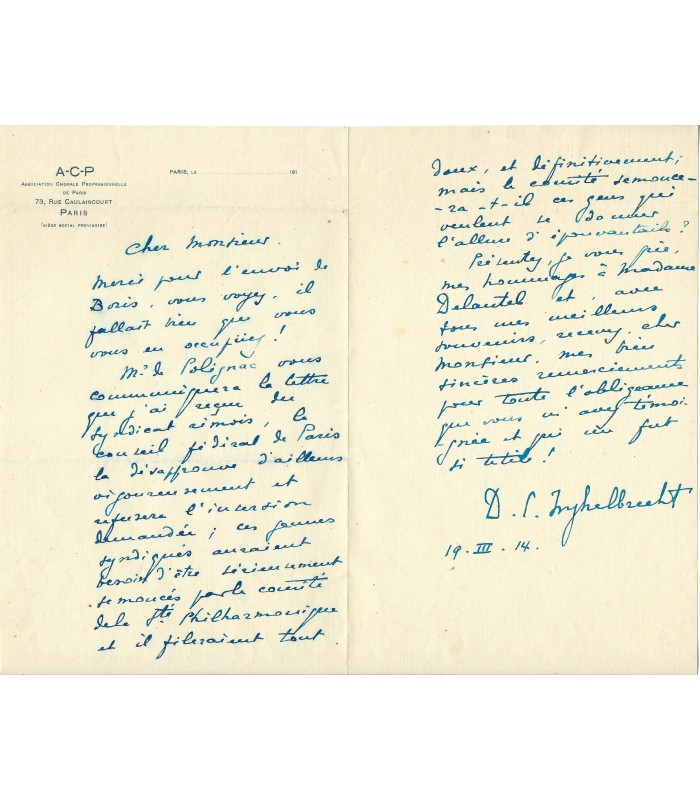 A-C-P
ASSOCIATION CHORALE PROFESSIONNELLE
DE PARIS
73, RUE CAULAINCOURT
PARIS
(SIÈGE SOCIAL PROVISOIRE)
PARIS, LE 191
Cher Monsieur.
Merci pour l'envoi de
Boris, vous voyez, il
fallait bien que vous
vous en occupiez !
Mr de Polignac vous
communiquera la lettre
que j'ai reçue du
syndicat rémois, le
conseil fédéral de Paris
la désapprouve d'ailleurs
vigoureusement et
refusera l'insertion
demandée ; ces jeunes
syndiqués auraient
besoin d'être sérieusement
semoncés par le comité
de la Sté Philharmonique
et il fileraient tout
doux, et définitivement ;
mais le comité semonce-
-ra-t-il ces gens qui
veulent se donner
l'allure d'épouvantails ?
Présentez, je vous prie,
mes hommages à Madame
Delautel et, avec
tous mes meilleurs
souvenirs, recevez, cher
Monsieur, mes bien
sincères remerciements
pour toute l'obligeance
que vous m'avez témoi-
gnée et qui m'en fut
si utile !
D. E. Inghelbrecht
19 - III - 14.